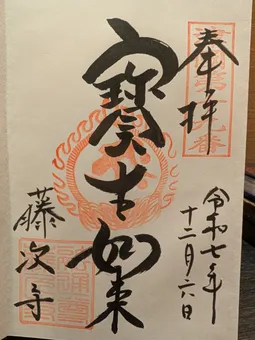 奉拝
寶生如来
藤次寺
令和七年
十二月六日